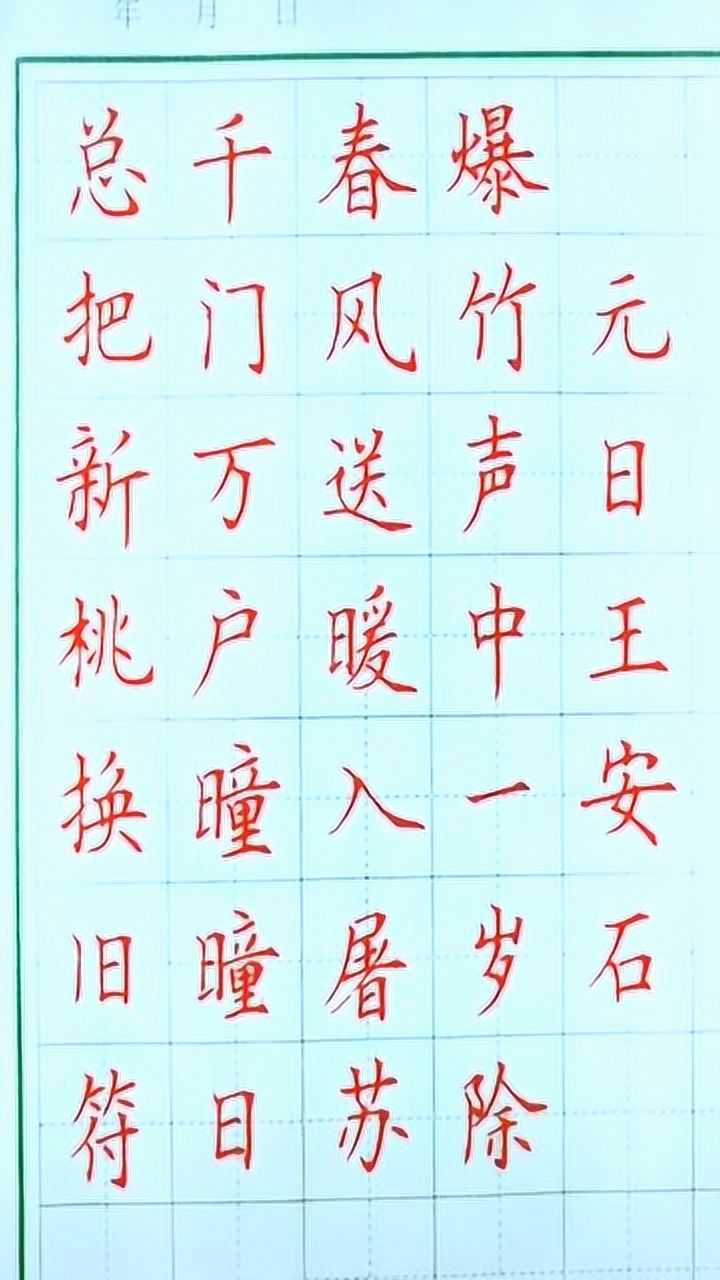 年 月 日
元日王安石
爆竹声中一岁除
春风送暖入屠苏
千门万户曈曈日
总把新桃换旧符